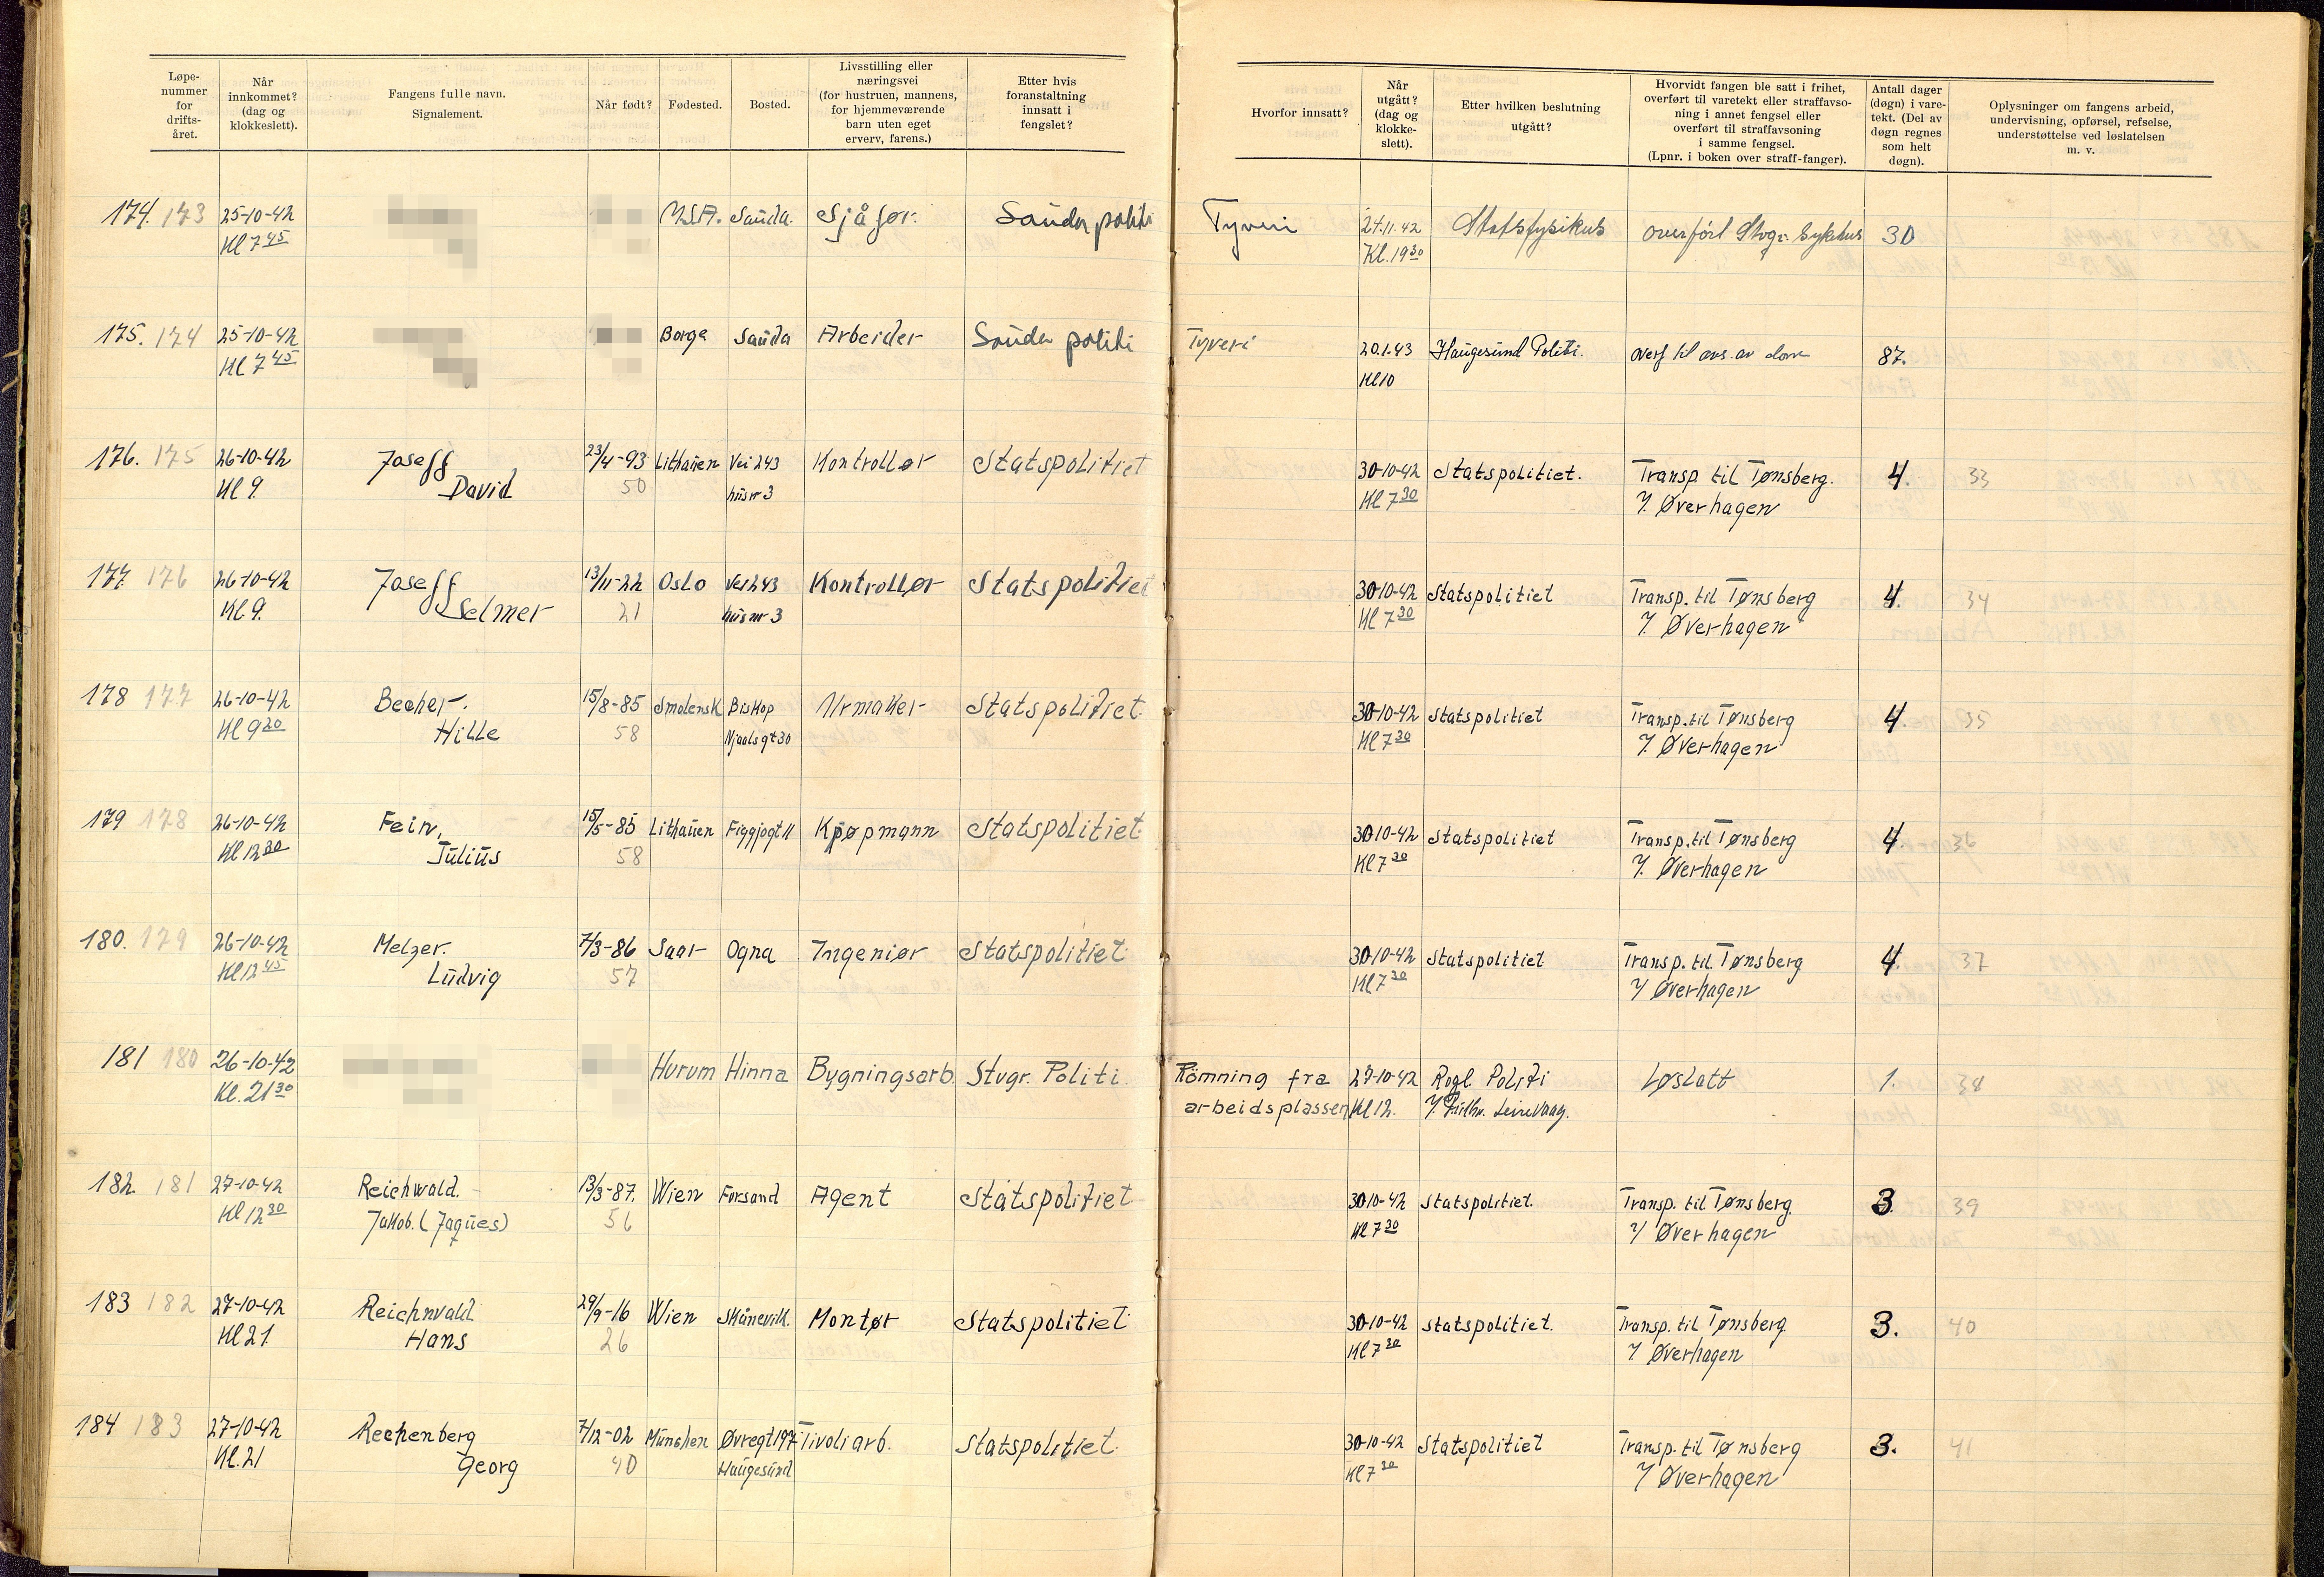 Løpe-
nummer
for
drifts-
året.
Når
innkommet?
(dag og
klokkeslett).
Fangens fulle navn.
Signalement.
Når født?
Fødested.
Bosted.
Livsstilling eller
næringsvei
(for hustruen, mannens,
for hjemmeværende
barn uten eget
erverv, farens.)
Etter hvis
foranstaltning
innsatt i
fengslet?
Hvorfor innsatt?
Når
utgått?
(dag og
klokke-
slett).
Etter hvilken beslutning
utgått?
Hvorvidt fangen ble satt i frihet,
overført til varetekt eller straffavso-
ning i annet fengsel eller
overført til straffavsoning
i samme fengsel.
(Lpnr. i boken over straff-fanger).
Antall dager
(døgn) i vare-
tekt. (Del av
døgn regnes
som helt
døgn).
Oplysninger om fangens arbeid,
undervisning, opførsel, refselse,
understøttelse ved løslatelsen
m. v.
174. 173 25-10-42 U.S.A. Sauda. Sjåfør. Sauda politi Tyveri 24.11.42 Statsfysikus overført Stvgr. Sykehus 30
Kl 7 45 Kl. 19 30
175. 174 25-10-42 Borge Sauda Arbeider Sauda politi Tyveri 20.1.43 Haugesund Politi. overf til avs. av dom 87.
Kl 7 45 Kl 10
176. 175 26-10-42 Joseff 23/4-93 Lithauen Vei 243 Kontrollør Statspolitiet 30-10-42 Statspolitiet. Transp til Tønsberg. 4. 33
Kl 9. David 50 hus nr 3 Kl 7 30 Øverhagen
177. 176 26-10-42 Joseff 13/11-22 Oslo Vei 243 Kontrollør Statspolitiet 30-10-42 Statspolitiet Transp. til Tønsberg 4. 34
Kl. 9. Selmer 21 hus nr 3 Kl 7 30 Øverhagen
178 177 26-10-42 Becher. 15/8-85 Smolensk Biskop Urmaker Statspolitiet 30-10-42 Statspolitiet Transp. til Tønsberg 4. 35
Kl 9 20 Hille 58 Njaals gt 30 Kl 7 30 Øverhagen
179 178 26-10-42 Fein, 15/5-85 Lithauen Figgjogt 11 Kjøpmann Statspolitiet 30-10-42 Statspolitiet Transp. til Tønsberg 4. 36
Kl 12 30 Julius 58 Kl 7 30 Øverhagen
180. 179 26-10-42 Melzer. 7/3-86 Saar Ogna Ingeniør Statspolitiet 30-10-42 Statspolitiet Transp. til Tønsberg 4. 37
Kl 12 45 Ludvig 57 Kl 7 30 Øverhagen
181 180 26-10-42 Hurum Hinna Bygningsarb. Stvgr. Politi. Römning fra 27-10-42 Rogl Politi Løslatt 1. 38
Kl. 21 30 arbeidsplassen Kl 12.
182. 181 27-10-42 Reichwald. 13/3-87. Wien Forsand Agent Statspolitiet 30-10-42 Statspolitiet. Transp. til Tønsberg. 3. 39
Kl 12 30 Jakob. (Jaques) 56 Kl 7 30 Øverhagen
183 182 27-10-42 Reichwald 29/9-16 Wien Skånevik. Montør Statspolitiet 30-10-42 Statspolitiet. Transp. til Tønsberg. 3. 40
Kl 21 Hans 26 Kl 7 30 Øverhagen
184 183 27-10-42 Rechenberg 7/12-02 München Øvregt 197 Tivoli arb. Statspolitiet 30-10-42 Statspolitiet Transp. til Tønsberg 3. 41
Kl. 21 Georg 40 Haugesund Kl 7 30 Øverhagen